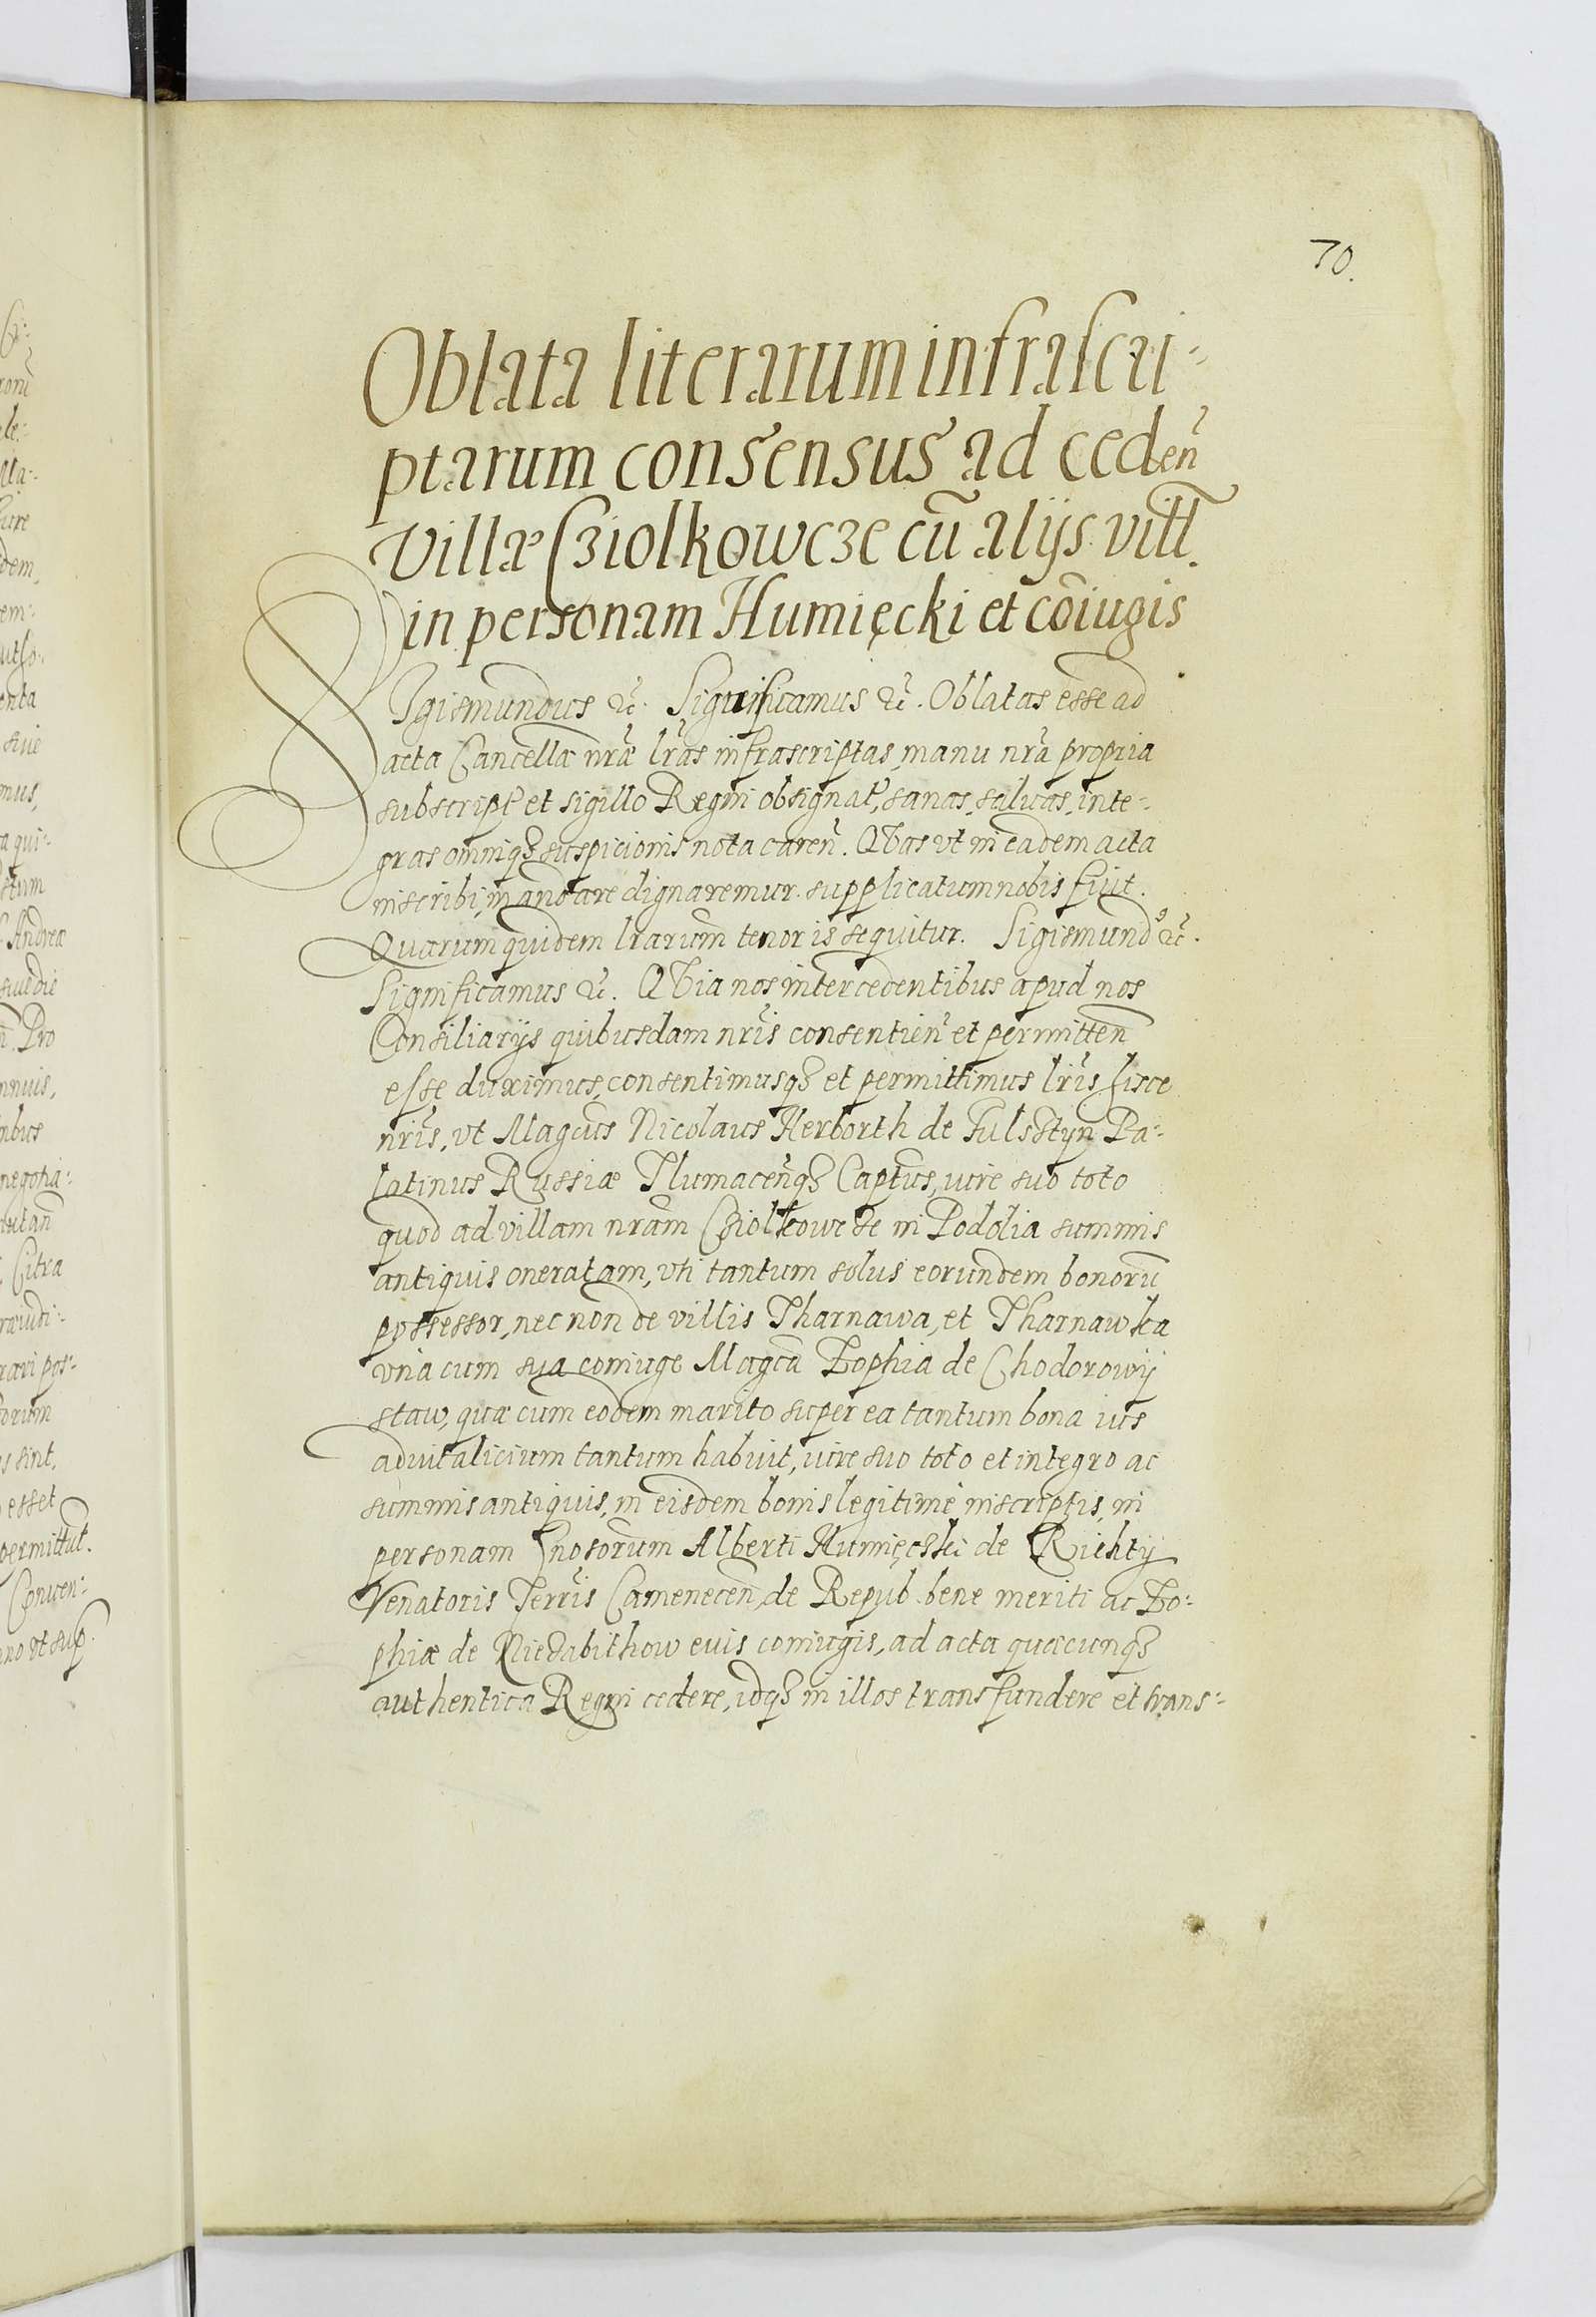 70.
Oblata literarum infrascri-
ptarum consensus ad ceden̄
Villæ Cziolkowcze cū alijs vill̄.
in personam Humięcki et cōiugis
SIgismundus &c. Significamus &c. Oblatas esse ad
acta Cancellæ nr̄æ lr̄as infrascriptas, manu nr̄a propria
subscript̄ et sigillo Regni obsignat̄, sanas, saluas, inte-
gras omniq3 suspicionis nota caren̄. QVas vt in eadem acta
inscribi, mandare dignaremur. supplicatum nobis fuit.
Quarum quidem lrarum tenor is sequitur. Sigismund9 &c.
Significamus &c. QVia nos intercedentibus apud nos
Consiliarijs quibusdam nr̄is consentien̄ et permitten̄
esse duximus, consentimusq3 et permittimus lr̄is hisce
nr̄is, vt Magcūs Nicolaus Herborth de Fulsstyn Pa-
latinus Russiæ Tlumacen̄q3 Captūs, iure suo toto
quod ad villam nrām Cziolkowcze in Podolia summis
antiquis oneratam, vti tantum solus eorundem bonorū
possessor, nec non de villis Tharnawa, et Tharnawka
vna cum sua coniuge Magcā Zophia de Chodorowij
staw, quæ cum eodem marito super ea tantum bona ius
aduitalicium tantum habuit, iure suo toto et integro ac
summis antiquis, in eisdem bonis legitime inscriptis, in
personam Gnosorum Alberti Humięczki de Richty
Venatoris Terrīs Camenecen̄, de Repub. bene meriti ac Zo-
phiæ de Niedabithow euis coniugis, ad acta quæcunq3
authentica Regni cedere, idq3 in illos transfundere et trans-